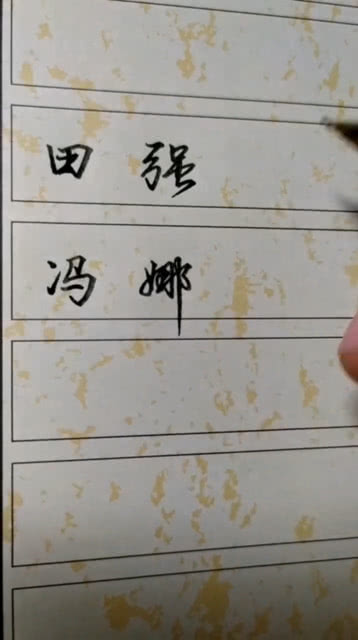 田强
冯娜